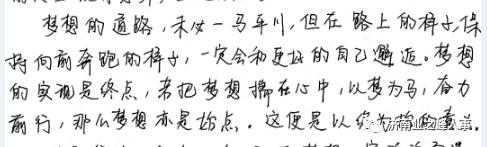 梦想的道路，未必一马平川，但在路上的样子，保
持向前奔跑的样子，一定会和更好的自己邂逅。梦想
的实现是终点，若把梦想揣在心中，以梦为马，奋力
前行，那么梦想亦是始点。这便是以终为始的意义。